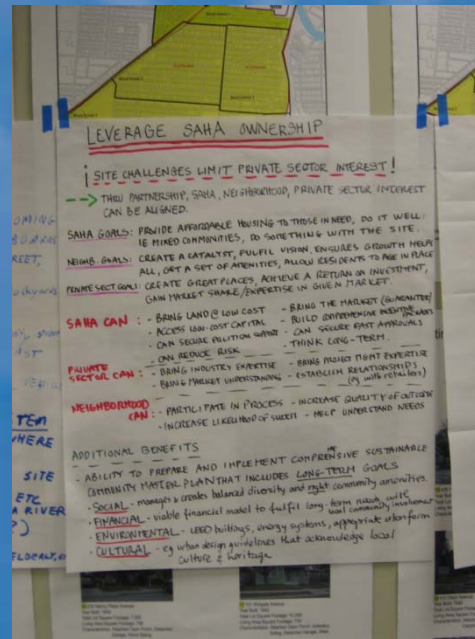 LEVERAGE SAHA OWNERSHIP
¡SITE CHALLENGES LIMIT PRIVATE SECTOR INTEREST!
THRU PARTNERSHIP, SAHA, NEIGHBORHOOD, PRIVATE SECTOR INTEREST
CAN BE ALIGNED.
SAHA GOALS: PROVIDE AFFORDABLE HOUSING TO THOSE IN NEED, DO IT WELL.
IE MIXED COMMUNITIES, DO SOMETHING WITH THE SITE.
NEIGHB. GOALS: CREATE A CATALYST, FULFIL VISION, ENSURES GROWTH HELPS
ALL, GET A SET OF AMENITIES, ALLOW RESIDENTS TO AGE IN PLACE
PRIVATE SECT. GOALS: CREATE GREAT PLACES, ACHIEVE A RETURN ON INVESTMENT,
GAIN MARKET SHARE/EXPERTISE IN GIVEN MARKET.
SAHA CAN: - BRING LAND @ LOW COST - BRING THE MARKET (GUARANTEE)
- ACCESS LOW-COST CAPITAL - BUILD COMPREHENSIVE INCENTIVE
- CAN SECURE POLITICAL SUPPORT - CAN SECURE FAST APPROVALS
- CAN REDUCE RISK - THINK LONG-TERM.
PRIVATE SECTOR CAN: - BRING INDUSTRY EXPERTISE - BRING PROJECT MGMT EXPERTISE
- BRING MARKET UNDERSTANDING - ESTABLISH RELATIONSHIPS
(eg with retailers)
NEIGHBORHOOD CAN: - PARTICIPATE IN PROCESS - INCREASE QUALITY OF OUTCOME
- INCREASE LIKELIHOOD OF SUCCESS - HELP UNDERSTAND NEEDS
ADDITIONAL BENEFITS
- ABILITY TO PREPARE AND IMPLEMENT COMPREHENSIVE SUSTAINABLE
COMMUNITY MASTER PLAN THAT INCLUDES LONG-TERM GOALS
- SOCIAL - manages & creates balanced diversity and right community amenities.
- FINANCIAL - viable financial model to fulfil long-term needs with
local community involvement
- ENVIRONMENTAL - LEED buildings, energy systems, appropriate urban form
- CULTURAL - eg urban design guidelines that acknowledge local
culture & heritage
OMING
REET,
TEN
WHERE
SITE
ETC
A RIVER